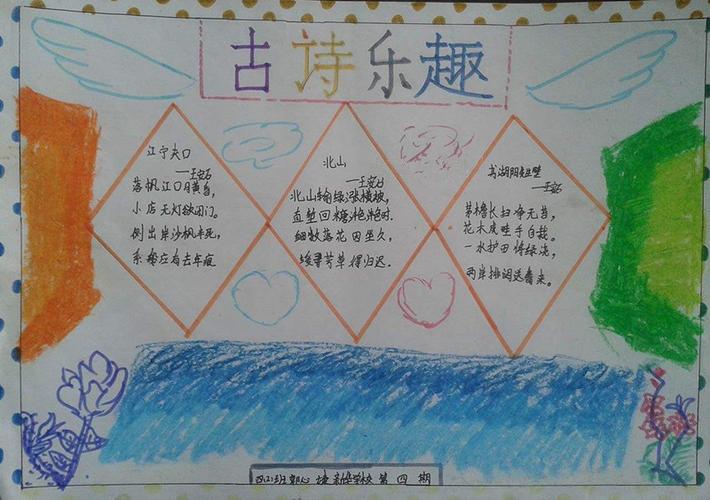 古诗乐趣
江宁夹口
——王安石
落帆江口月黄昏,
小店无灯欲闭门。
侧出岸沙枫半死,
系船应有去年痕
北山
——王安石
北山输绿涨横陂,
直堑回塘滟滟时.
细数落花因坐久,
缓寻芳草得归迟.
书湖阴先生壁
——王安石
茅檐长扫净无苔,
花木成畦手自栽。
一水护田将绿绕,
两岸排闼送青来。
四(2)班 新华学校 第四期